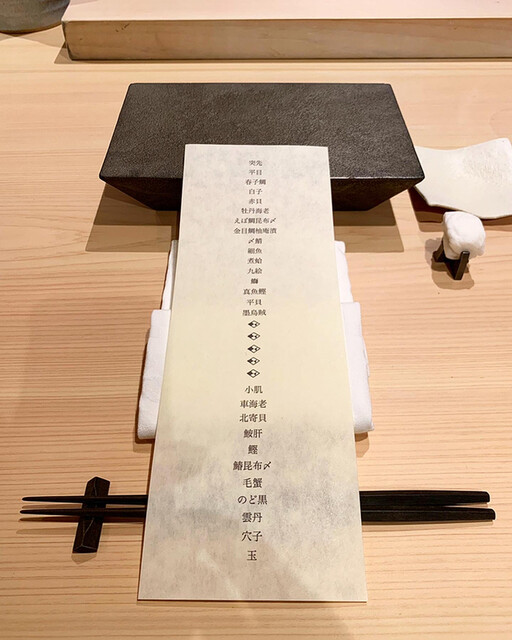 突先
平目
春子鯛
白子
赤貝
牡丹海老
えぼ鯛昆布〆
金目鯛柚庵漬
〆鯖
細魚
煮蛤
九絵
鰤
真魚鰹
平貝
墨烏賊
小肌
車海老
北寄貝
鮟肝
鰹
鰆昆布〆
毛蟹
のど黒
雲丹
穴子
玉